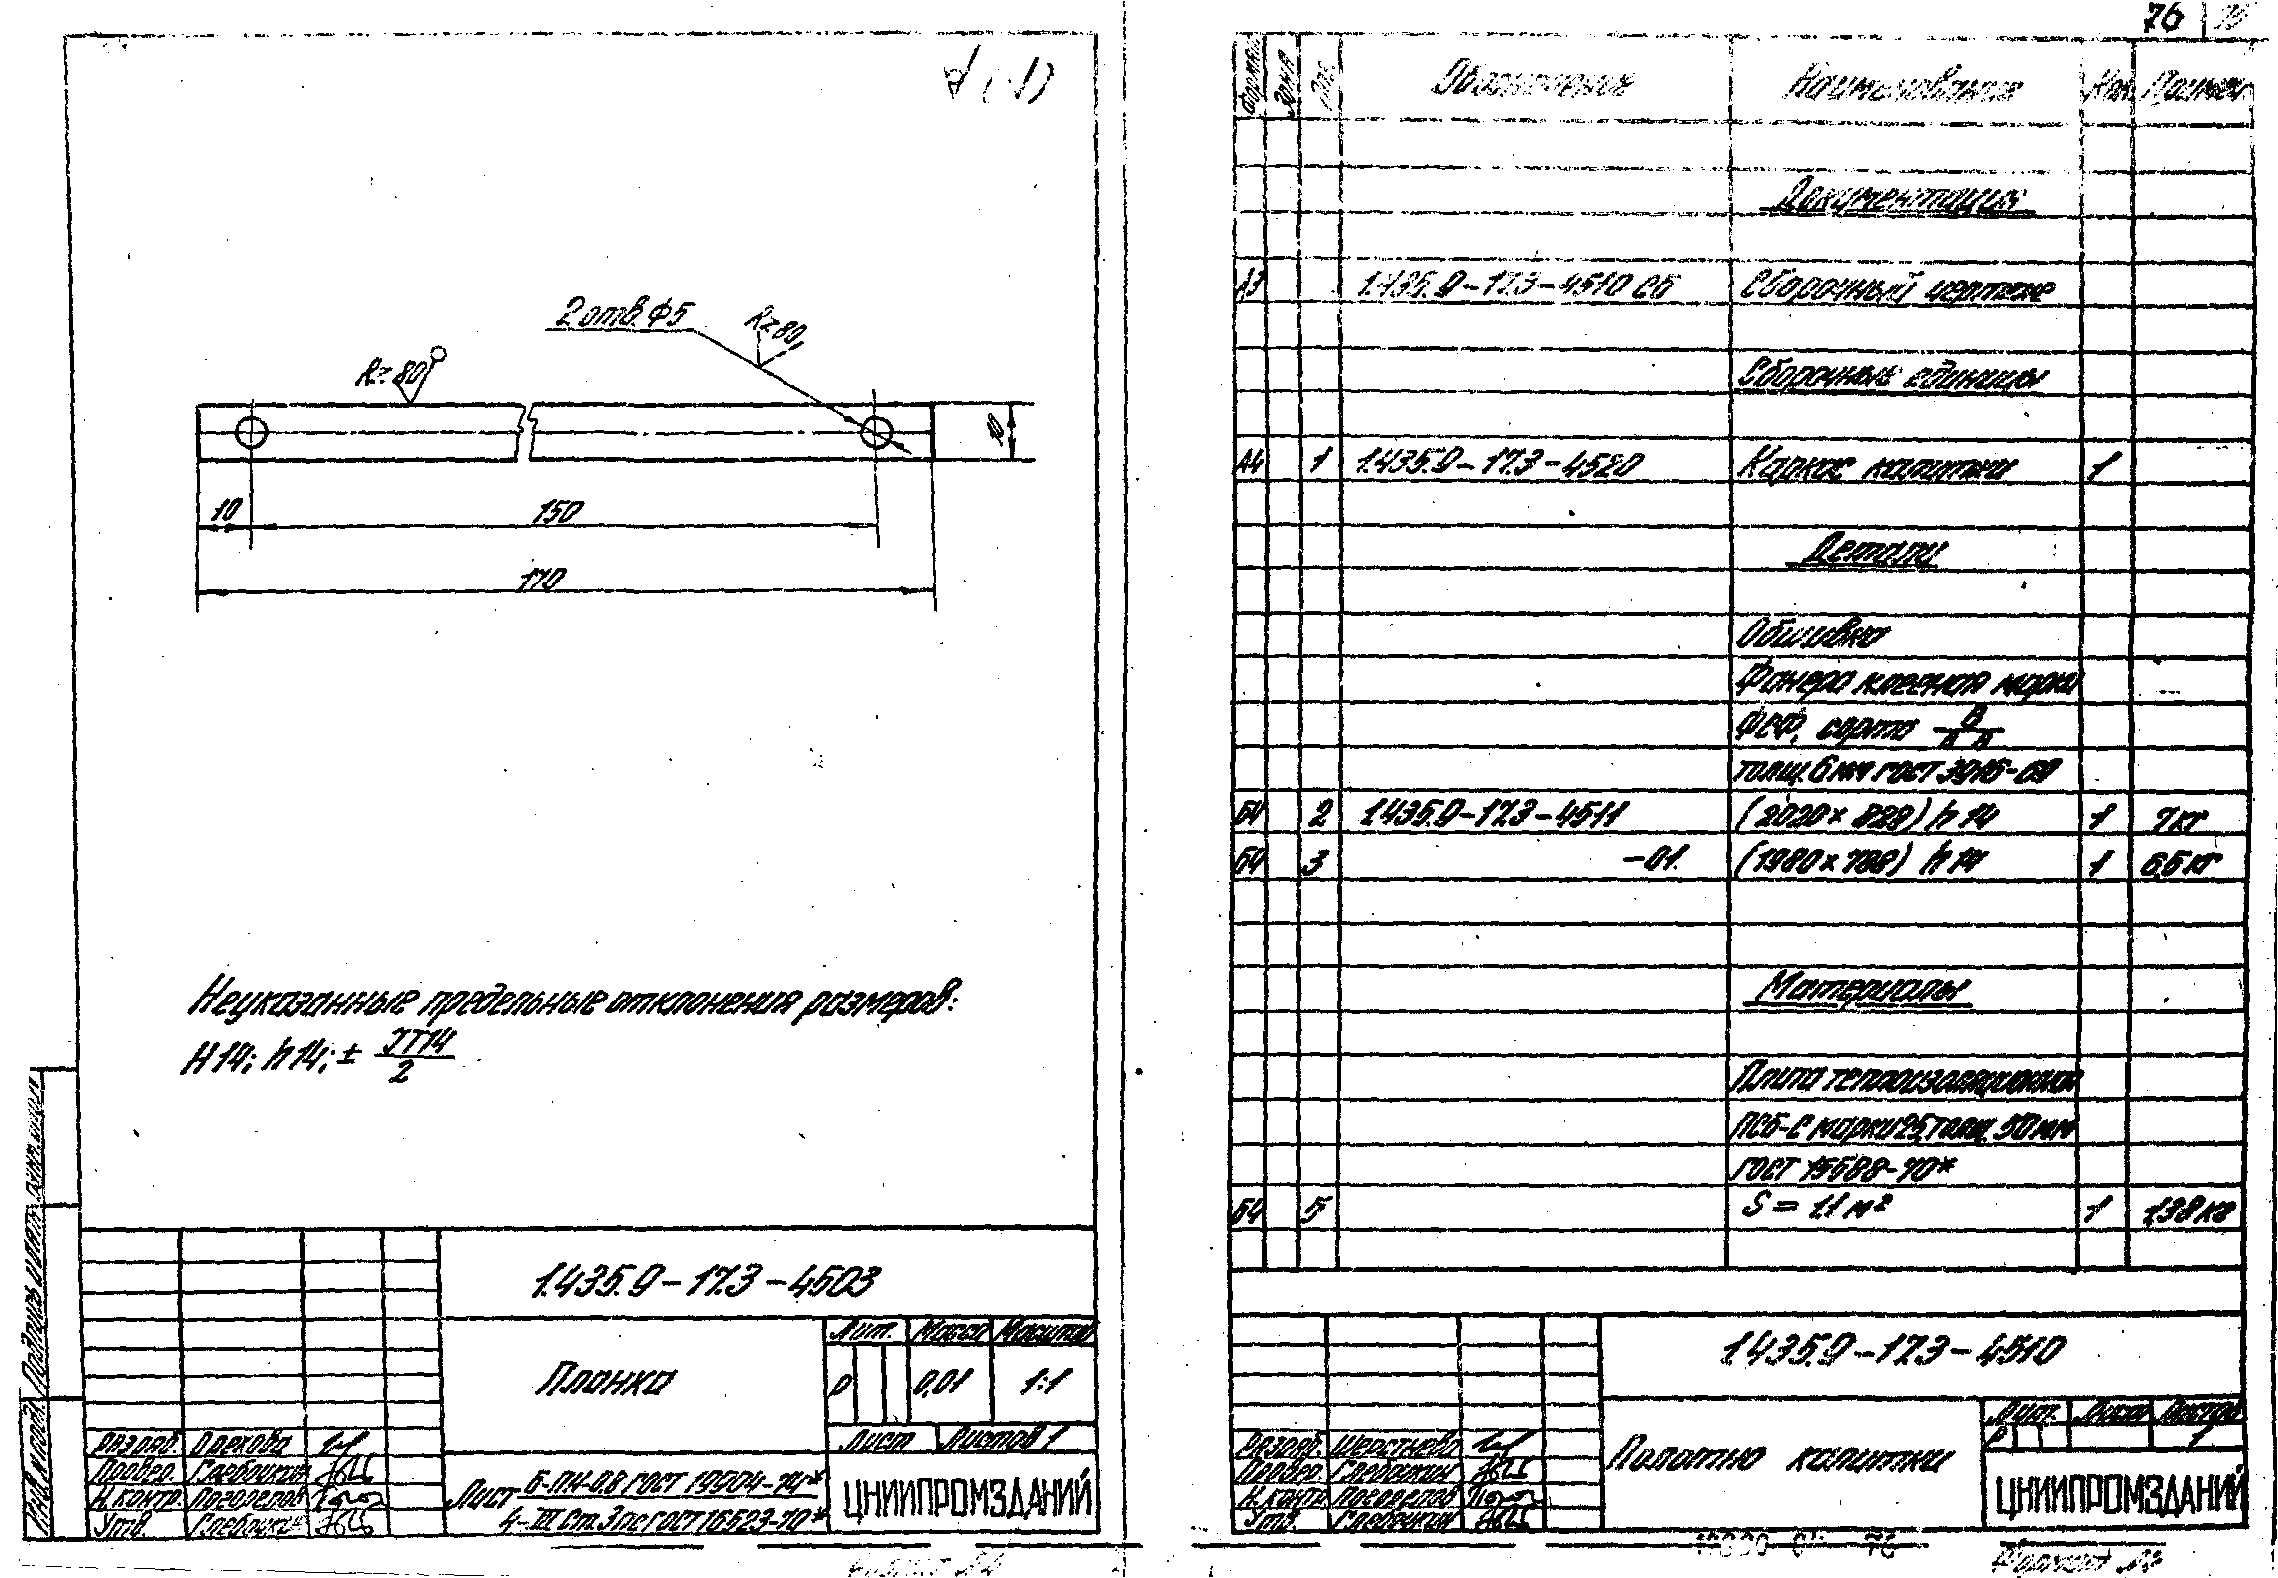 2 отв. Ф5
Rz 80
Rz 80
10
150
170
Неуказанные предельные отклонения размеров:
H14; h14; ± JT14
2
1.435.9-17.3-4503
Планка
Лит. Масса Масштаб
Р 0,01 1:1
Лист Листов 1
Разраб. Орехова
Провер.
Н.контр. Погорелов
Утв.
Лист Б-ПН-0,8 ГОСТ 19904-74*
4-III Ст.3пс ГОСТ 16523-70*
ЦНИИПРОМЗДАНИЙ
76
Формат Зона Поз. Обозначение Наименование Кол. Примеч.
Документация
А3 1.435.9-17.3-4510 СБ Сборочный чертеж
Сборочные единицы
А4 1 1.435.9-17.3-4520 Каркас калитки 1
Детали
Обшивка
Фанера клееная марки
ФСФ, сорта В
толщ. 6 мм ГОСТ 3916-69
Б4 2 1.435.9-17.3-4511 (2020×828) h14 1 7 кг
Б4 3 -01 (1980×788) h14 1 6,6 кг
Материалы
Плита теплоизоляционная
ПСБ-С марки 25, толщ. 50 мм
ГОСТ 15588-70*
Б4 5 S = 1,1 м² 1 1,38 кг
1.435.9-17.3-4510
Полотно калитки
Лит. Лист Листов
Р 1
Разраб. Шерстнева
Провер.
Н.контр. Погорелов
Утв.
ЦНИИПРОМЗДАНИЙ
Формат